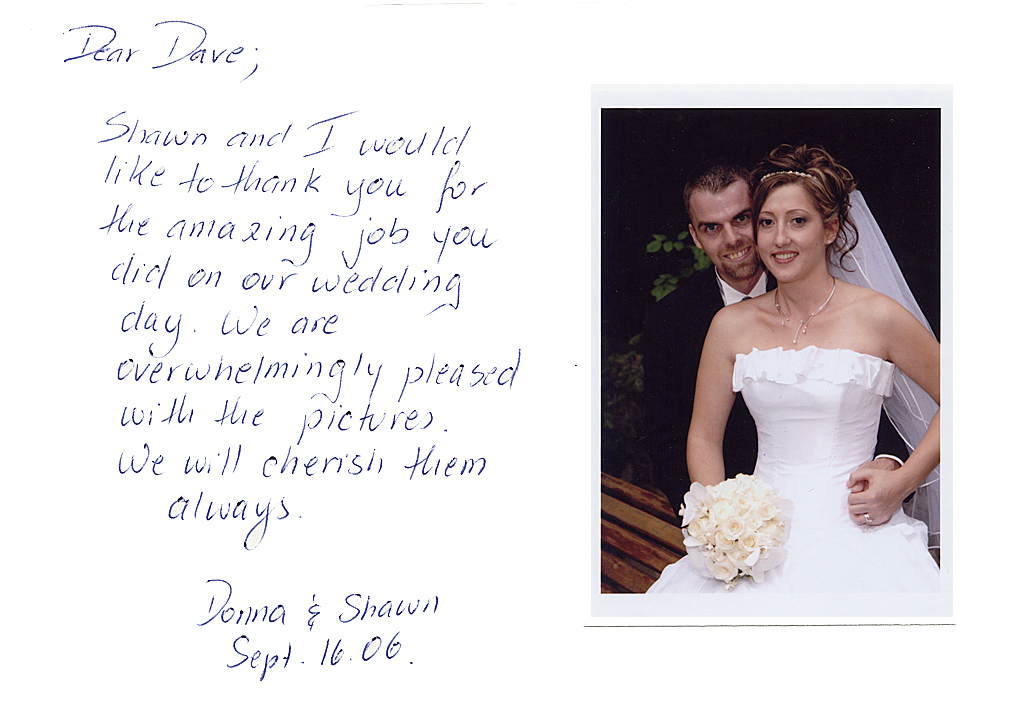 Dear Dave;
Shawn and I would
like to thank you for
the amazing job you
did on our wedding
day. We are
overwhelmingly pleased
with the pictures.
We will cherish them
always.
Donna & Shawn
Sept. 16.06.